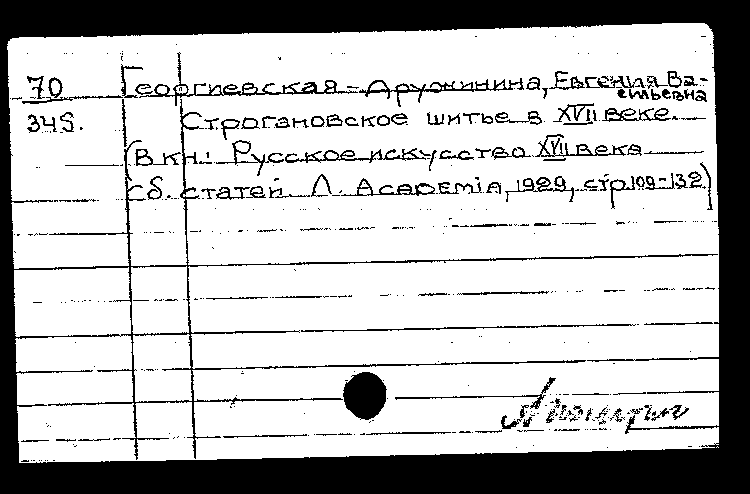 70 Георгиевская-Дружинина, Евгения Ва-
сильевна
345. Строгановское шитье в XVII веке.
(В кн.: Русское искусство XVII века.
Сб. статей. Л. Academia, 1929, стр. 109-132)